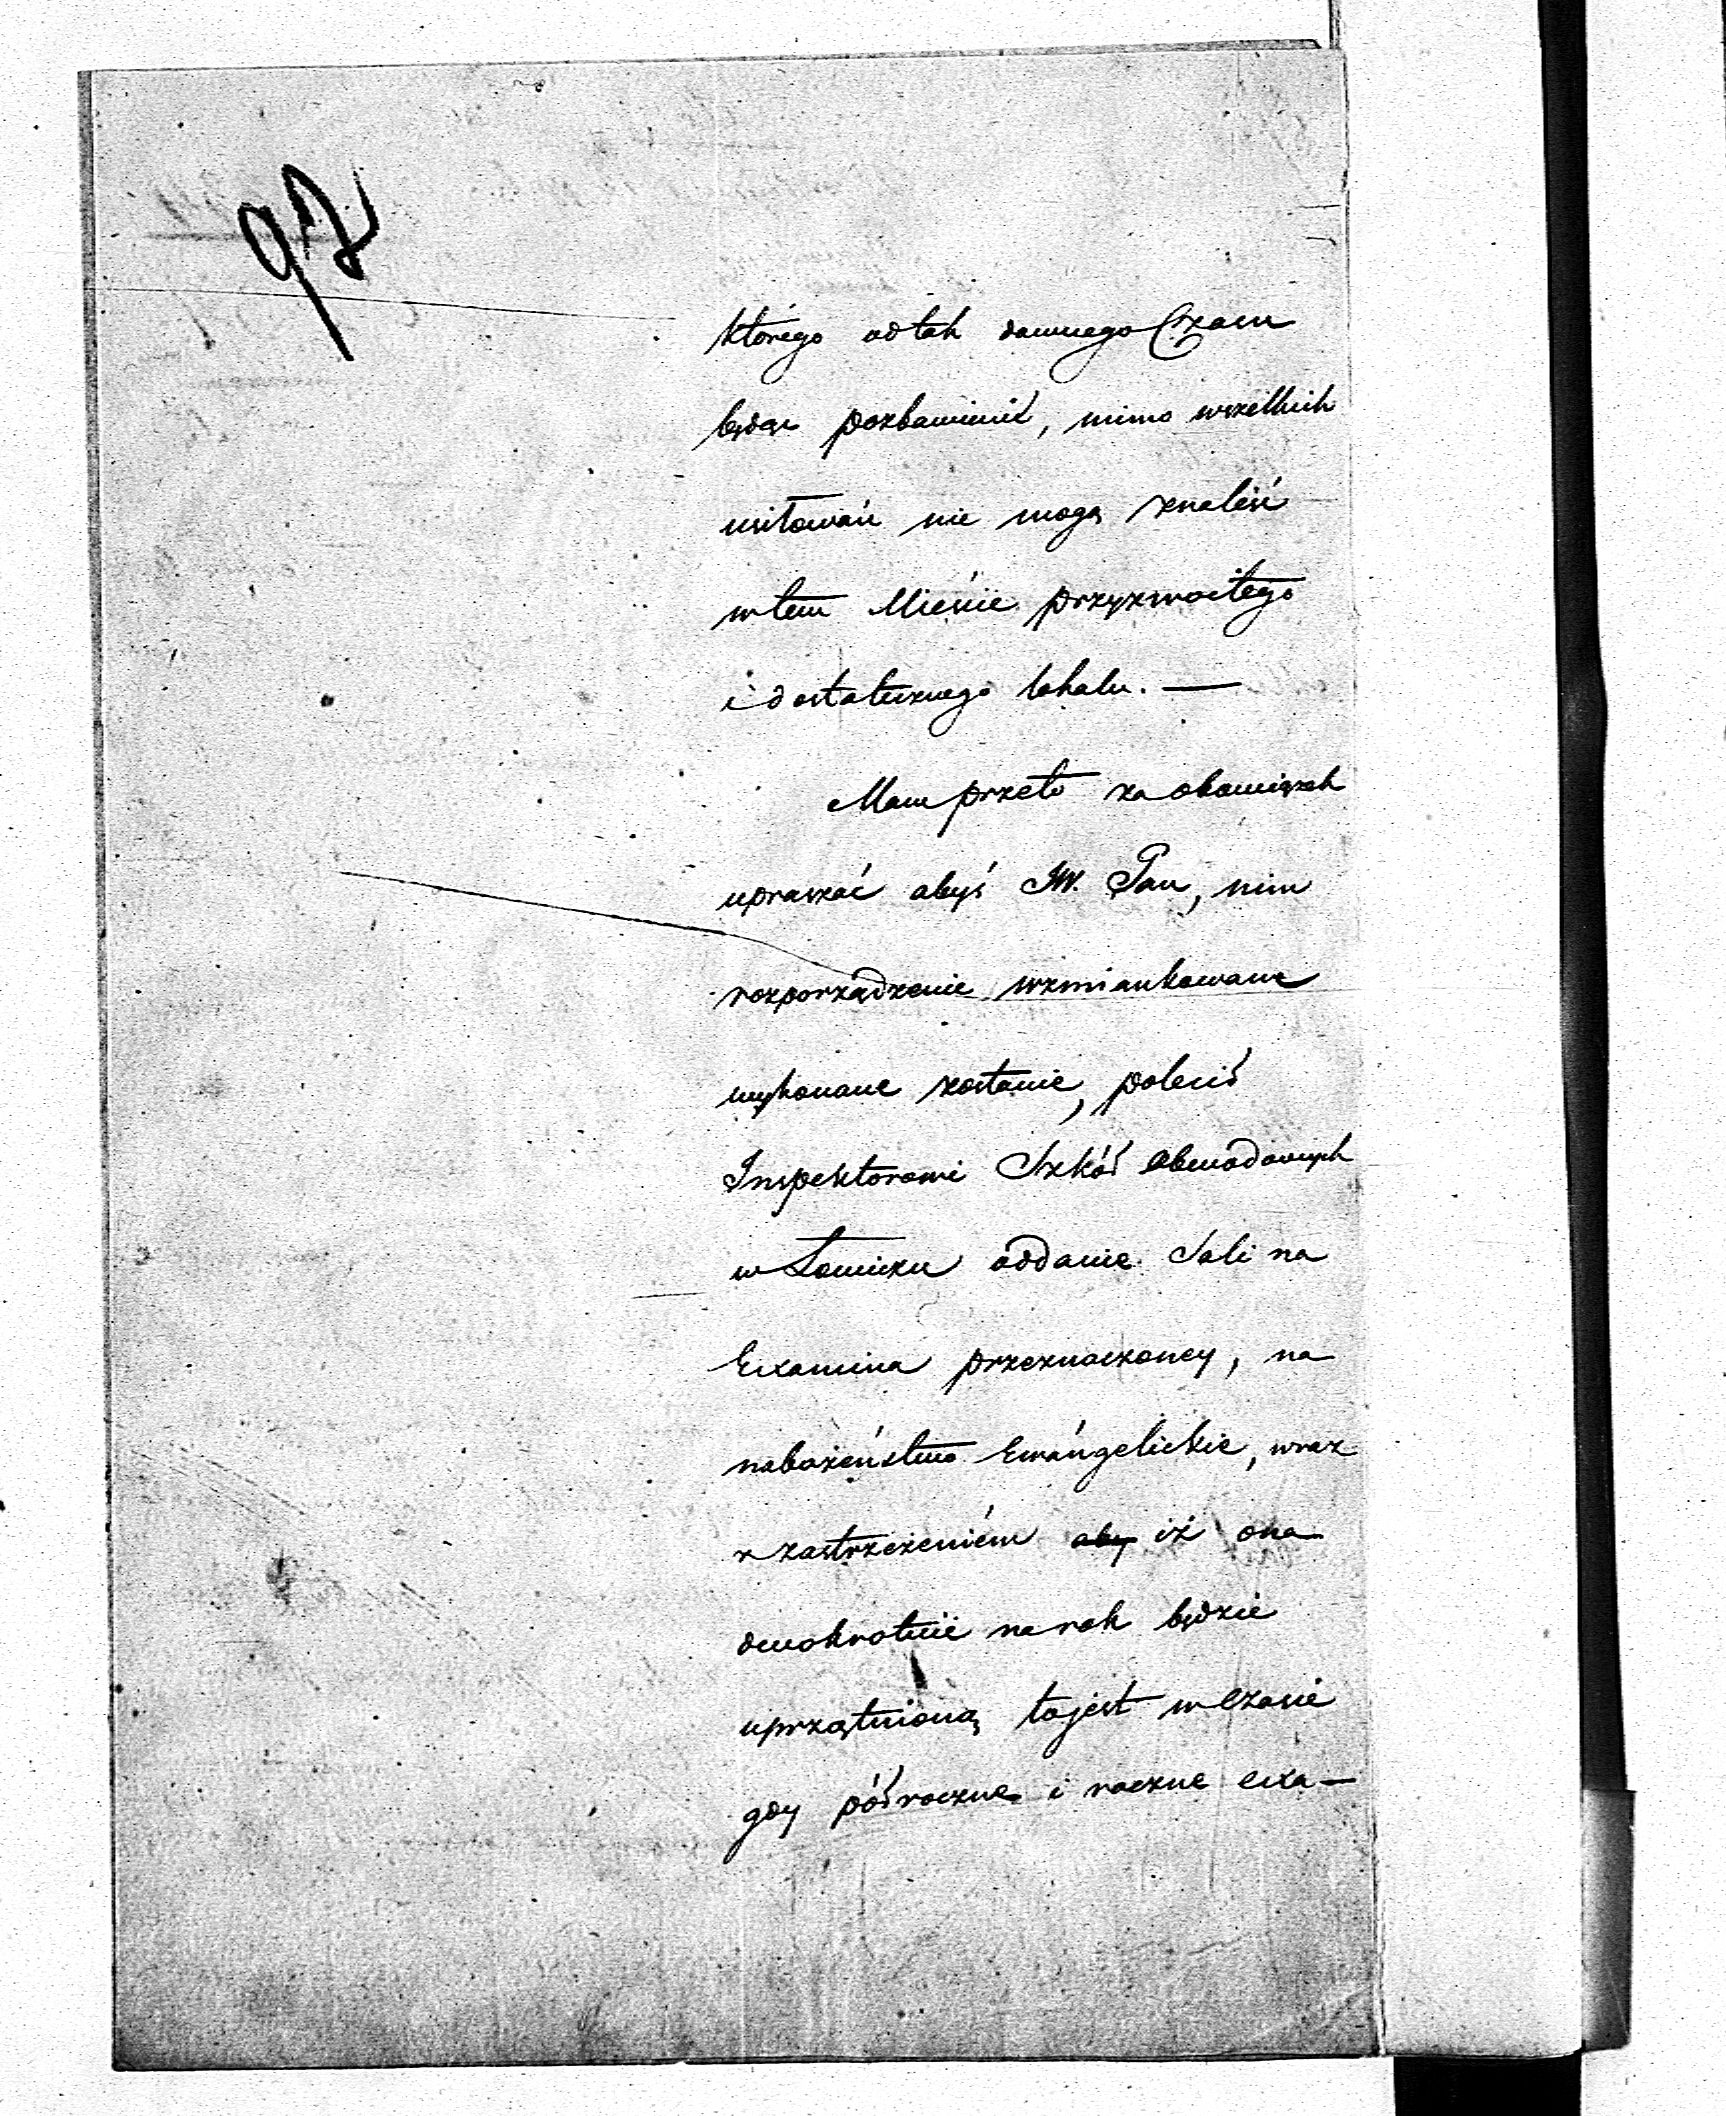 97
którego od tak dawnego Czasu
będąc pozbawieni, mimo wszelkich
usiłowań nie mogą znaleść
w tem Mieście przyzwoitego
i dostatecznego lokalu. —
Mam przeto za obowiązek
upraszać abyś JW. Pan, nim
rozporządzenie wzmiankowane
wykonane zostanie, polecił
Inspektorowi Szkół Obwodowych
w Łowiczu oddanie Sali na
Examina przeznaczoney, na
nabożeństwo Ewangelickie, wraz
z zastrzeżeniem aby iż ona
dwokrotnie na rok będzie
uprzątnioną to jest w czasie
gdy półroczne i roczne exa—